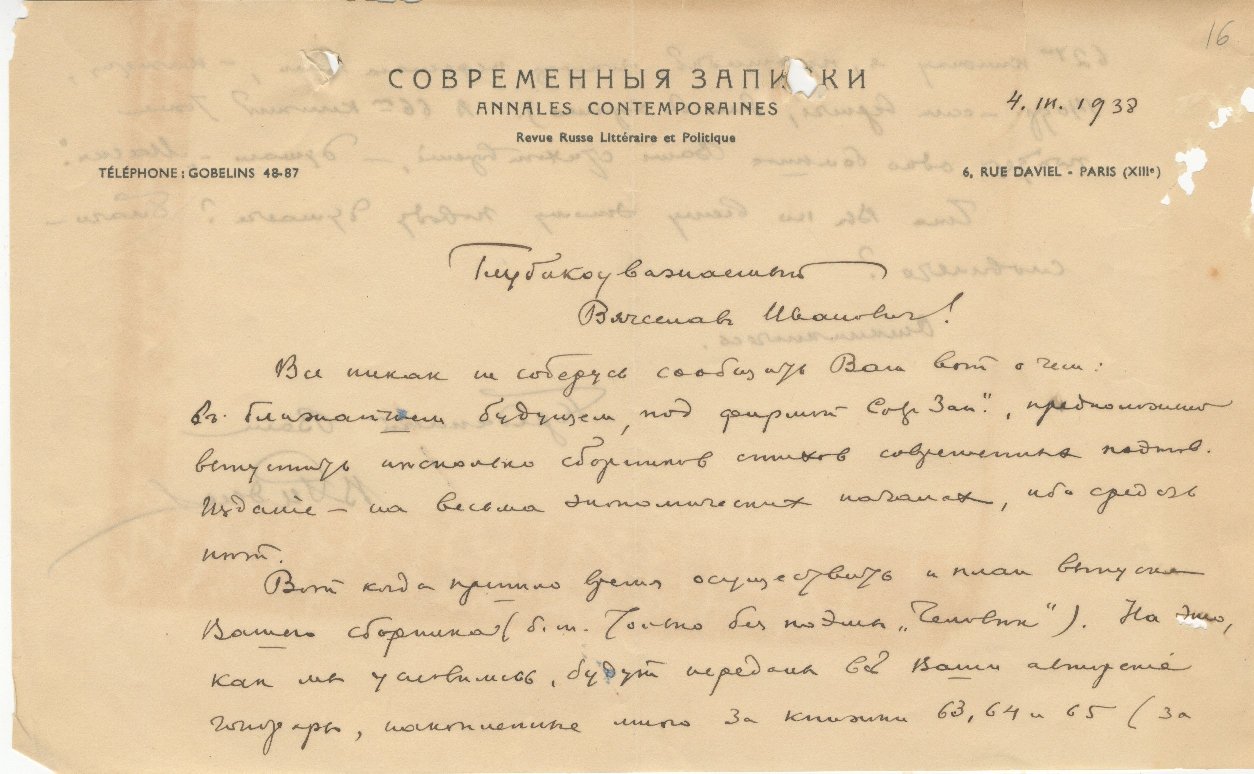 16
СОВРЕМЕННЫЯ ЗАПИСКИ
ANNALES CONTEMPORAINES
4. III. 1938
Revue Russe Littéraire et Politique
TÉLÉPHONE : GOBELINS 48-87
6, RUE DAVIEL - PARIS (XIIIᵉ)
Глубокоуважаемый
Вячеслав Иванович!
Все никак не соберусь сообщить Вам вот о чем:
въ ближайшем будущем, под фирмой „Совр. Зап.“, предположено
выпустить несколько сборников стихов современных поэтов.
Издание – на весьма экономических началах, ибо средств
нет.
Вот когда пришло время осуществить и план выпуска
Вашего сборника (б.м. только без поэмы „Человек“). На это,
как мы условились, будут переданы все Ваши авторские
гонорары, накопленные мною за книжки 63, 64 и 65 (за